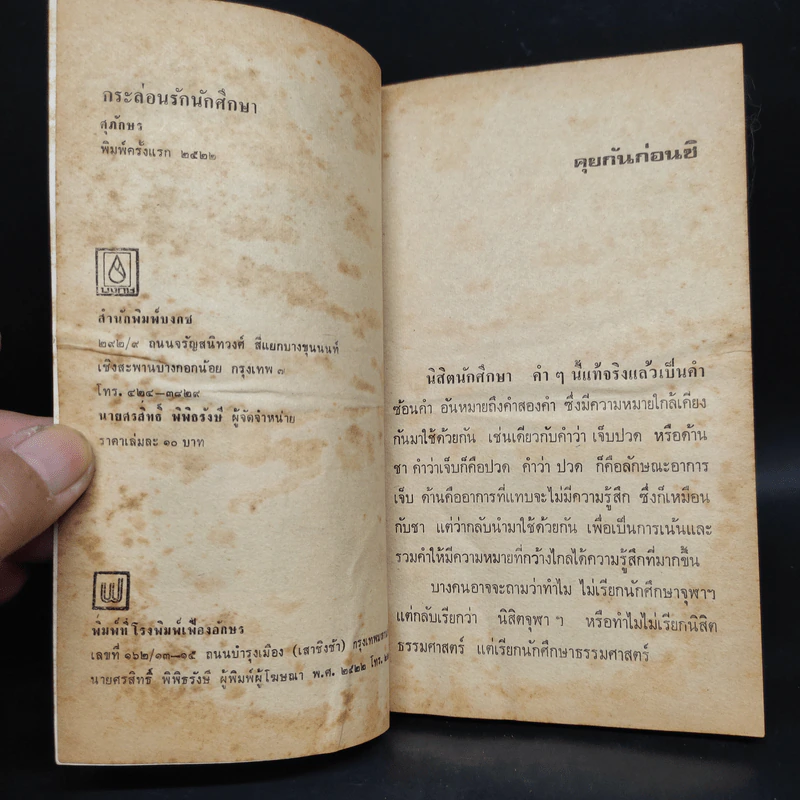 กระล่อนรักนักศึกษา
สุภักษร
พิมพ์ครั้งแรก ๒๕๒๒
บงกช
สำนักพิมพ์บงกช
๒๙๒/๙ ถนนจรัญสนิทวงศ์ สี่แยกบางขุนนนท์
เชิงสะพานบางกอกน้อย กรุงเทพ ๗
โทร. ๔๒๔—๓๘๒๙
นายศรสิทธิ์ พิพิธรังษี ผู้จัดจำหน่าย
ราคาเล่มละ ๑๐ บาท
พิมพ์ที่โรงพิมพ์เฟื่องอักษร
เลขที่ ๑๖๒/๑๓—๑๕ ถนนบำรุงเมือง (เสาชิงช้า)
นายศรสิทธิ์ พิพิธรังษี ผู้พิมพ์ผู้โฆษณา พ.ศ. ๒๕๒๒ โทร.
คุยกันก่อนซิ
นิสิตนักศึกษา คำ ๆ นี้แท้จริงแล้วเป็นคำ
ซ้อนคำ อันหมายถึงคำสองคำ ซึ่งมีความหมายใกล้เคียง
กันมาใช้ด้วยกัน เช่นเดียวกับคำว่า เจ็บปวด หรือด้าน
ชา คำว่าเจ็บก็คือปวด คำว่า ปวด ก็คือลักษณะอาการ
เจ็บ ด้านคืออาการที่แทบจะไม่มีความรู้สึก ซึ่งก็เหมือน
กับชา แต่ว่ากลับนำมาใช้ด้วยกัน เพื่อเป็นการเน้นและ
รวมคำให้มีความหมายที่กว้างไกลได้ความรู้สึกที่มากขึ้น
บางคนอาจจะถามว่าทำไม ไม่เรียกนักศึกษาจุฬาฯ
แต่กลับเรียกว่า นิสิตจุฬา ฯ หรือทำไมไม่เรียกนิสิต
ธรรมศาสตร์ แต่เรียกนักศึกษาธรรมศาสตร์